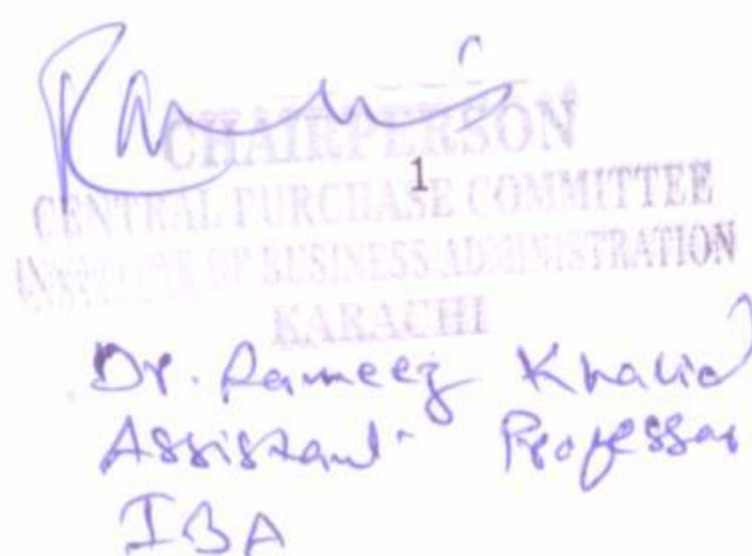 CHAIRPERSON
1
CENTRAL PURCHASE COMMITTEE
INSTITUTE OF BUSINESS ADMINISTRATION
KARACHI
Dr. Rameez Khalid
Assistant Professor
IBA